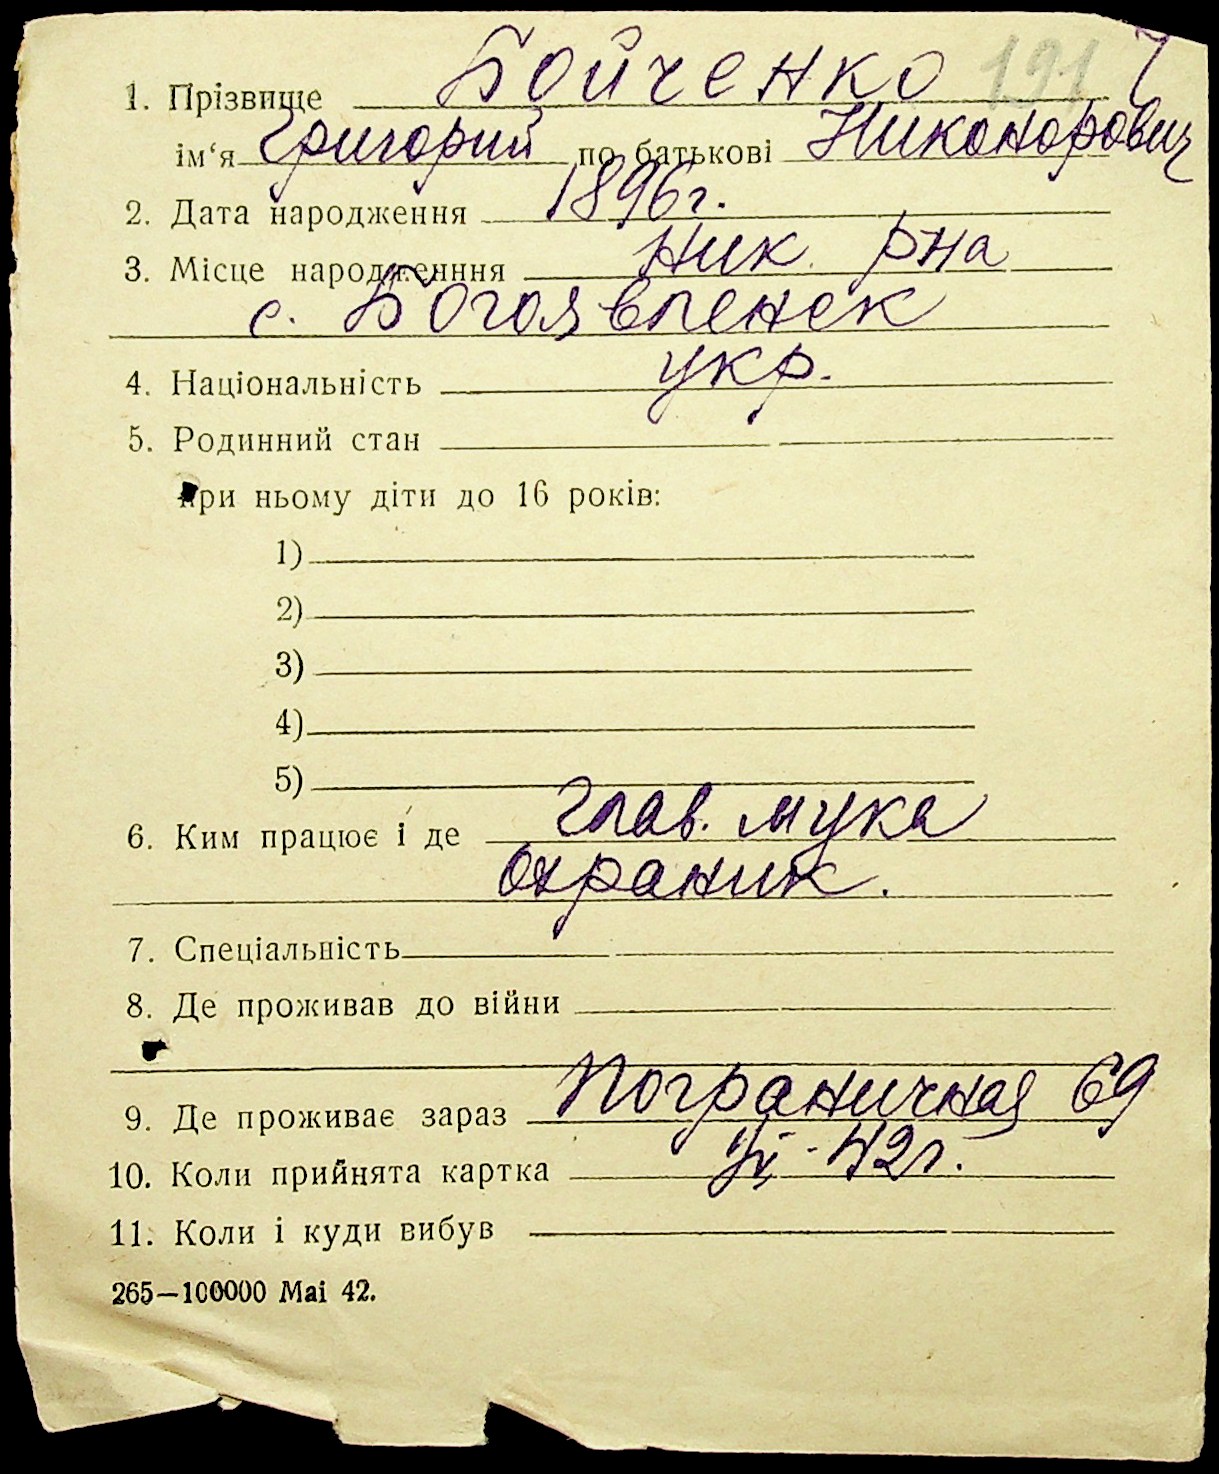 191
1. Прізвище Бойченко
ім‘я Григорий по батькові Никонорович
2. Дата народження 1896 г.
3. Місце народженння Ник. рна
с. Богоявленск
4. Національність укр.
5. Родинний стан
при ньому діти до 16 років:
1)
2)
3)
4)
5)
6. Ким працює і де Глав. мука
охраник.
7. Спеціальність
8. Де проживав до війни
9. Де проживає зараз Пограничная 69
10. Коли прийнята картка 42г.
11. Коли і куди вибув
265—100000 Mai 42.